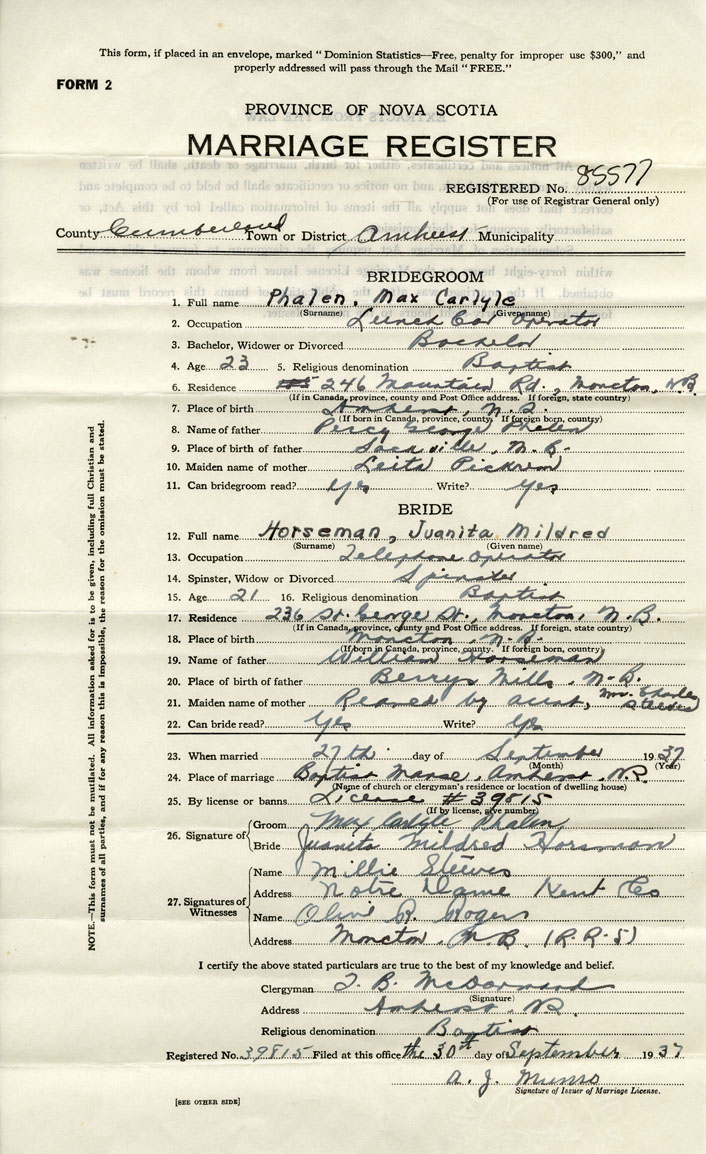 This form, if placed in an envelope, marked "Dominion Statistics—Free, penalty for improper use $300," and
properly addressed will pass through the Mail "FREE."
FORM 2
PROVINCE OF NOVA SCOTIA
MARRIAGE REGISTER
REGISTERED No. 85577
(For use of Registrar General only)
County Cumberland Town or District Amherst Municipality
BRIDEGROOM
1. Full name Phalen, Max Carlyle
(Surname) (Given name)
2. Occupation Lunch Car Operator
3. Bachelor, Widower or Divorced Bachelor
4. Age 23 5. Religious denomination Baptist
6. Residence 246 Mountain Rd., Moncton, N.B.
(If in Canada, province, county and Post Office address. If foreign, state country)
7. Place of birth Amherst, N.S.
(If born in Canada, province, county. If foreign born, country)
8. Name of father Percy George Phalen
9. Place of birth of father Sackville, N.B.
10. Maiden name of mother Leita Pickrem
11. Can bridegroom read? Yes Write? Yes
BRIDE
12. Full name Horseman, Juanita Mildred
(Surname) (Given name)
13. Occupation Telephone Operator
14. Spinster, Widow or Divorced Spinster
15. Age 21 16. Religious denomination Baptist
17. Residence 236 St. George St., Moncton, N.B.
(If in Canada, province, county and Post Office address. If foreign, state country)
18. Place of birth Moncton, N.B.
(If born in Canada, province, county. If foreign born, country)
19. Name of father William Horseman
20. Place of birth of father Berrys Mills, N.B.
21. Maiden name of mother Reared by aunt, Mrs. Charles Steeves
22. Can bride read? Yes Write? Yes
23. When married 27th day of September 1937
(Month) (Year)
24. Place of marriage Baptist Manse, Amherst, N.S.
(Name of church or clergyman's residence or location of dwelling house)
25. By license or banns License # 39815
(If by license, give number)
26. Signature of
Groom Max Carlyle Phalen
Bride Juanita Mildred Horsman
27. Signatures of Witnesses
Name Millie Steeves
Address Notre Dame Kent Co
Name Olive R. Rogers
Address Moncton, N.B. (R.R.5)
I certify the above stated particulars are true to the best of my knowledge and belief.
Clergyman
(Signature)
Address Amherst, N.S.
Religious denomination Baptist
Registered No. 39815 Filed at this office the 30th day of September 1937
A. J. Munro
Signature of Issuer of Marriage License.
[SEE OTHER SIDE]
NOTE.—This form must not be mutilated. All information asked for is to be given, including full Christian and
surnames of all parties, and if for any reason this is impossible, the reason for the omission must be stated.